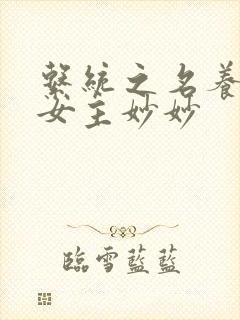 繫統之名養
女主妙妙
臨雪藍藍